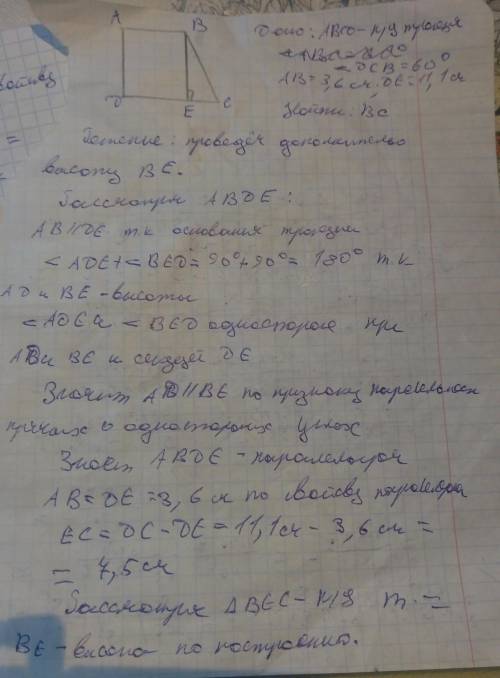 A B
D E C
Дано: ABCD - п/у трапеция
< DCB = 60°
AB = 3,6 см. DE = 11,1 см
Найти: BC
войству
=
Решение: проведём дополнительо
высоту BE.
Рассмотрим ABDE:
AB // DE т.к основания трапции
< ADE + < BED = 90° + 90° = 180° т.к
AD и BE - высоты
< ADE и < BED одностороние при
AD и BE и секущей DE
Значит AD // BE по признаку паралельности
прямых о одностороних углах
Значит ABDE - паралелограм
AB = DE = 3,6 см по свойву паралелограма
EC = DC - DE = 11,1 см - 3,6 см =
= 7,5 см
Рассмотрим ΔBEC - п/у т. =
BE - высота по построению.